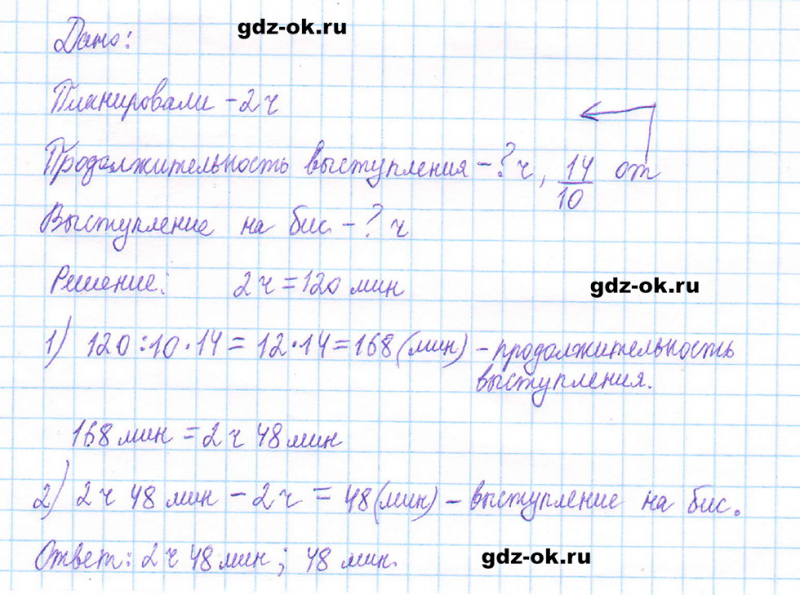 gdz-ok.ru
Дано:
Планировали - 2 ч
Продолжительность выступления - ? ч, 14/10 от
Выступление на бис - ? ч
Решение: 2 ч = 120 мин
gdz-ok.ru
1) 120 : 10 · 14 = 12 · 14 = 168 (мин) - продолжительность
выступления.
168 мин = 2 ч 48 мин
2) 2 ч 48 мин - 2 ч = 48 (мин) - выступление на бис.
Ответ: 2 ч 48 мин; 48 мин.
gdz-ok.ru